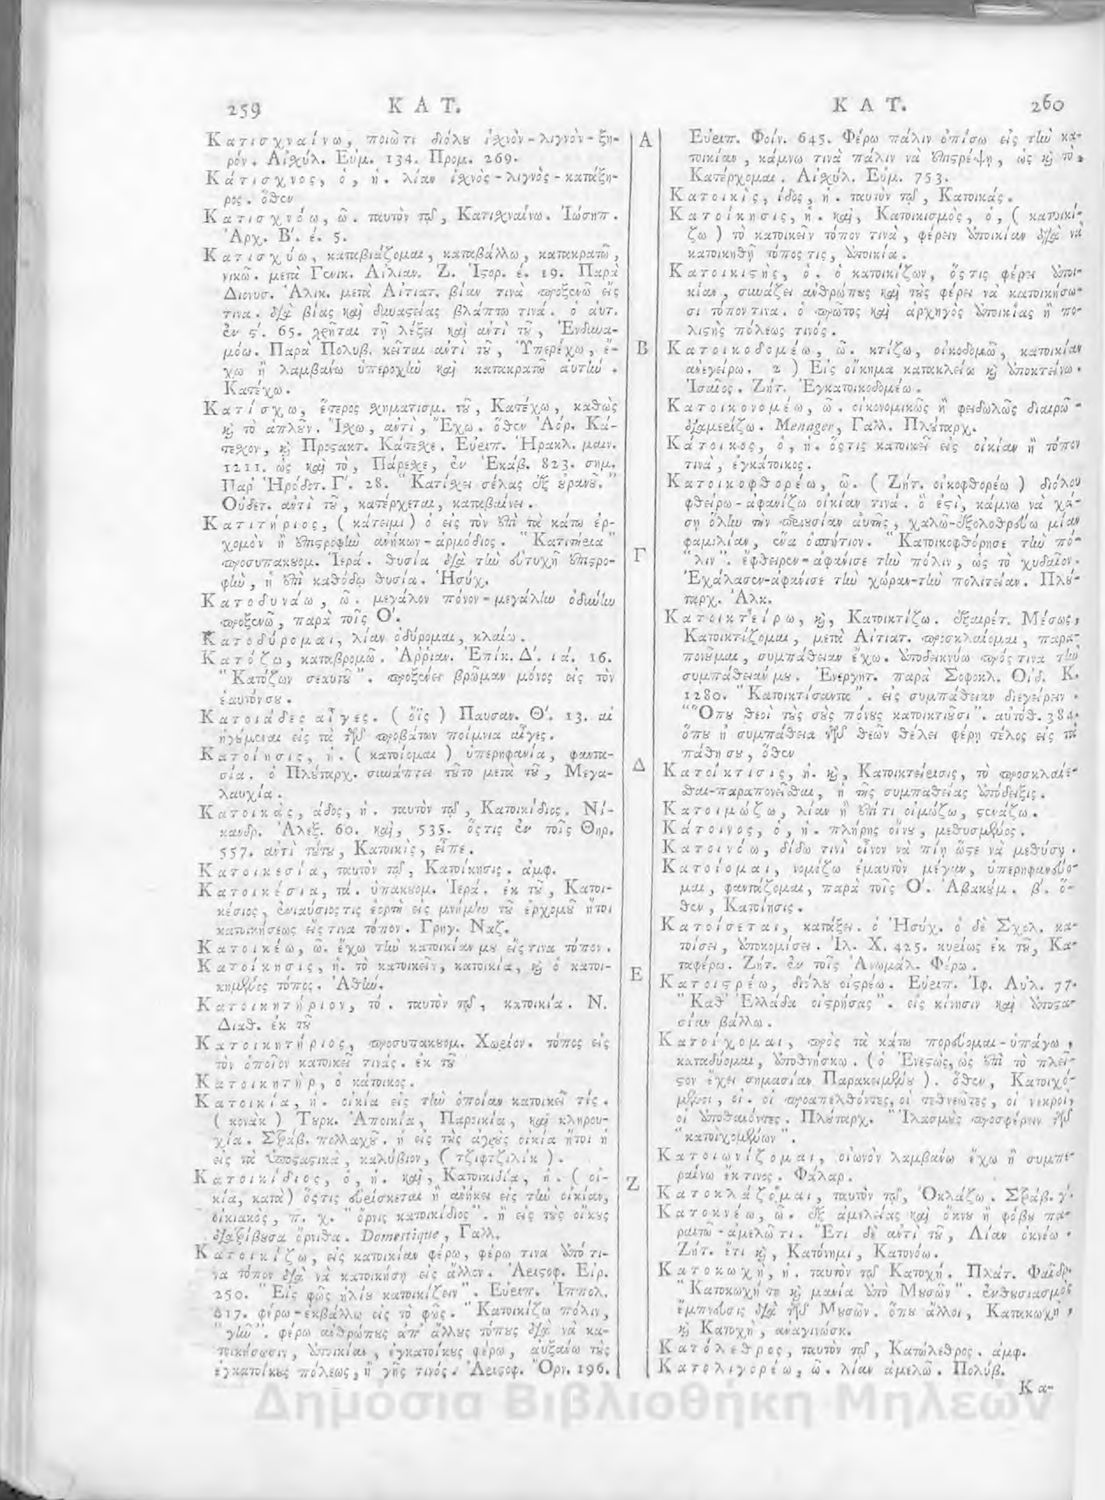 259 ΚΑΤ.
Κατισχναίνω, ποιῶ τι διόλου ἰσχνὸν-λιγνὸν-ξη-
ρόν. Αἰσχύλ. Εὐμ. 134. Προμ. 269.
Κάτισχνος, ὁ, ἡ. λίαν ἰσχνὸς-λιγνὸς-κατάξη-
ρος. ὅθεν
Κατισχνόω, ῶ. ταυτὸν τῷ, Κατισχναίνω. Ἰώσηπ.
Ἀρχ. Β΄. έ. 5.
Κατισχύω, καταβιάζομαι, καταβάλλω, κατακρατῶ,
νικῶ. μετὰ Γενικ. Αἰλιαν. Ζ. Ἱστορ. έ. 19. Παρὰ
Διονυσ. Ἁλικ. μετὰ Αἰτιατ. βίαν τινὰ προξενῶ εἴς
τινα. διὰ βίας καὶ δυναστείας βλάπτω τινά. ὁ αὐτ.
ἐν ς΄. 65. χρῆται τῇ λέξει καὶ ἀντὶ τοῦ, Ἐνδυνα-
μόω. Παρὰ Πολυβ. κεῖται ἀντὶ τοῦ, Ὑπερέχω, ἔ-
χω ἢ λαμβάνω ὑπεροχὴν καὶ κατακρατῶ αὐτὴν.
Κατέχω.
Κατίσχω, ἕτερος σχηματισμ. τοῦ, Κατέχω, καθὼς
καὶ τὸ ἁπλοῦν. Ἴσχω, ἀντὶ, Ἔχω. ὅθεν Ἀόρ. Κά-
τεσχον, καὶ Προστακτ. Κάτεσχε. Εὐριπ. Ἡρακλ. μαιν.
1211. ὡς καὶ τὸ, Πάρεσχε, ἐν Ἑκάβ. 823. σημ.
Παρ' Ἡρόδοτ. Γ΄. 28. "Κατίσχει σέλας ἐξ οὐρανοῦ."
Οὐδετ. ἀντὶ τοῦ, κατέρχεται, καταβαίνει.
Κατιτήριος, (κάτειμι) ὁ εἰς τὸν ἐπὶ τὰ κάτω ἐρ-
χομὸν ἢ ἐπιστροφὴν ἀνήκων-ἁρμόδιος. "Κατιτήρια"
προσυπακουομ. Ἱερά. θυσία διὰ τὴν εὐτυχῆ ἐπιστρο-
φὴν, ἢ ἐπὶ καθόδῳ θυσία. Ἡσύχ.
Κατοδυνάω, ῶ. μεγάλον πόνον-μεγάλην ὀδύνην
προξενῶ, παρὰ τοῖς Ο΄.
Κατοδύρομαι, λίαν ὀδύρομαι, κλαίω.
Κατόζω, καταβρομῶ. Ἀρριαν. Ἐπίκ. Δ΄. ιά. 16.
"Κατόζων σεαυτοῦ". προξενεῖ βρῶμαν μόνος εἰς τὸν
ἑαυτόν σου.
Κατοιάδες αἶγες. (ὄϊς) Παυσαν. Θ΄. 13. αἱ
ἡγούμεναι εἰς τὰ τῶν προβάτων ποίμνια αἶγες.
Κατοίησις, ἡ. (κατοίομαι) ὑπερηφανία, φαντα-
σία. ὁ Πλούταρχ. συνάπτει τοῦτο μετὰ τοῦ, Μεγα-
λαυχία.
Κατοικὰς, άδος, ἡ. ταυτὸν τῷ, Κατοικίδιος. Νί-
κανδρ. Ἀλεξ. 60. καὶ, 535. ὅστις ἐν τοῖς Θηρ.
557. ἀντὶ τούτου, Κατοικὶς, εἶπε.
Κατοικεσία, ταυτὸν τῷ, Κατοίκησις. ἀμφ.
Κατοικέσια, τά. ὑπακουομ. Ἱερά. ἐκ τοῦ, Κατοι-
κέσιος, ἐνιαύσιός τις ἑορτὴ εἰς μνήμην τοῦ ἐρχομοῦ ἤτοι
κατοικήσεως εἴς τινα τόπον. Γρηγ. Ναζ.
Κατοικέω, ῶ. ἔχω τὴν κατοικίαν μου εἴς τινα τόπον.
Κατοίκησις, ἡ. τὸ κατοικεῖν, κατοικία, καὶ ὁ κατοι-
κημένος τόπος. Ἀθην.
Κατοικητήριον, τό. ταυτὸν τῷ, κατοικία. Ν.
Διαθ. ἐκ τοῦ
Κατοικητήριος, προσυπακουομ. Χωρίον. τόπος εἰς
τὸν ὁποῖον κατοικεῖ τινάς. ἐκ τοῦ
Κατοικητὴρ, ὁ κάτοικος.
Κατοικία, ἡ. οἰκία εἰς τὴν ὁποίαν κατοικεῖ τίς.
(κονὰκ) Τουρκ. Ἀποικία, Παροικία, καὶ κληρου-
χία. Στράβ. πολλαχοῦ. ἡ εἰς τοὺς ἀγροὺς οἰκία ἤτοι ἡ
εἰς τὰ ὑποστατικὰ, καλύβιον, (τζιφτζιλὶκ).
Κατοικίδιος, ὁ, ἡ. καὶ, Κατοικιδία, ἡ. (οἰ-
κία, κατὰ) ὅστις εὑρίσκεται ἢ ἀνήκει εἰς τὴν οἰκίαν,
οἰκιακός, π. χ. "ὄρνις κατοικίδιος". ἡ εἰς τοὺς οἴκους
διατρίβουσα ὄρνιθα. Domestique, Γαλλ.
Κατοικίζω, εἰς κατοικίαν φέρω, φέρω τινα ὑπό τι-
να τόπον διὰ νὰ κατοικήσῃ εἰς ἄλλον. Ἀριστοφ. Εἰρ.
250. "Εἰς φῶς ἡλίου κατοικίζειν". Εὐριπ. Ἱππολ.
617. φέρω-ἐκβάλλω εἰς τὸ φῶς. "Κατοικίζω πόλιν,
"γῆν". φέρω ἀνθρώπους ἀπ' ἄλλους τόπους διὰ νὰ κα-
τοικήσωσιν, ἀποικίαν, ἐγκατοίκους φέρω, αὐξάνω τοὺς
ἐγκατοίκους πόλεως, ἢ γῆς τινός. Ἀριστοφ. Ὀρν. 196.
Α
Β
Γ
Δ
Ε
Ζ
ΚΑΤ. 260
Εὐριπ. Φοίν. 645. Φέρω πάλιν ὀπίσω εἰς τὴν κα-
τοικίαν, κάμνω τινὰ πάλιν νὰ ἐπιστρέψῃ, ὡς καὶ τὸ,
Κατέρχομαι. Αἰσχύλ. Εὐμ. 753.
Κατοικὶς, ίδος, ἡ. ταυτὸν τῷ, Κατοικάς.
Κατοίκησις, ἡ. καὶ, Κατοικισμὸς, ὁ, (κατοικί-
ζω) τὸ κατοικεῖν τόπον τινὰ, φέρειν ἀποικίαν διὰ νὰ
κατοικηθῇ τόπος τις, ἀποικία.
Κατοικιστὴς, ὁ. ὁ κατοικίζων, ὅστις φέρει ἀποι-
κίαν, συνάζει ἀνθρώπους καὶ τοὺς φέρει νὰ κατοικήσω-
σι τόπον τινα. ὁ πρῶτος καὶ ἀρχηγὸς ἀποικίας ἢ πο-
λιστὴς πόλεως τινός.
Κατοικοδομέω, ῶ. κτίζω, οἰκοδομῶ, κατοικίαν
ἀνεγείρω. 2) Εἰς οἴκημα κατακλείω καὶ ἀποκτείνω.
Ἰσαῖος. Ζήτ. Ἐγκατοικοδομέω.
Κατοικονομέω, ῶ. οἰκονομικῶς ἢ φειδωλῶς διαιρῶ-
διαμερίζω. Menager, Γαλλ. Πλούταρχ.
Κάτοικος, ὁ, ἡ. ὅστις κατοικεῖ εἰς οἰκίαν ἢ τόπον
τινὰ, ἐγκάτοικος.
Κατοικοφθορέω, ῶ. (Ζήτ. οἰκοφθορέω) διόλου
φθείρω-ἀφανίζω οἰκίαν τινά. ὅ ἐστι, κάμνω νὰ χά-
σῃ ὅλην τὴν περιουσίαν αὐτῆς, χαλῶ-ἐξολοθρεύω μίαν
φαμιλίαν, ἕνα ὁσπήτιον. "Κατοικοφθόρησε τὴν πό-
"λιν". ἔφθειρεν-ἀφάνισε τὴν πόλιν, ὡς τὸ χυδαῖον.
Ἐχάλασεν-ἀφάνισε τὴν χώραν-τὴν πολιτείαν. Πλού-
ταρχ. Ἀλκ.
Κατοικτείρω, καὶ, Κατοικτίζω. ἐξαιρέτ. Μέσως,
Κατοικτίζομαι, μετὰ Αἰτιατ. προσκλαίομαι, παρα-
πονοῦμαι, συμπάθειαν ἔχω. ὑποδεικνύω πρός τινα τὴν
συμπάθειάν μου. Ἐνεργητ. παρὰ Σοφοκλ. Οἰδ. Κ.
1280. "Κατοικτίσαντα". εἰς συμπάθειαν διεγείρειν.
"Ὅπου θεοὶ τοὺς σοὺς πόνους κατοικτιοῦσι". αὐτόθ. 384.
ὅπου ἡ συμπάθεια τῶν θεῶν θέλει φέρῃ τέλος εἰς τὰ
πάθη σου, ὅθεν
Κατοίκτισις, ἡ. καὶ, Κατοικτείρισις, τὸ προσκλαίε-
σθαι-παραπονεῖσθαι, ἡ τῆς συμπαθείας ὑπόδειξις.
Κατοιμώζω, λίαν ἢ ἐπί τι οἰμώζω, στενάζω.
Κάτοινος, ὁ, ἡ. πλήρης οἴνου, μεθυσμένος.
Κατοινόω, δίδω τινὶ οἶνον νὰ πίῃ ὥστε νὰ μεθύσῃ.
Κατοίομαι, νομίζω ἐμαυτὸν μέγαν, ὑπερηφανεύο-
μαι, φαντάζομαι, παρὰ τοῖς Ο΄. Ἀβακουμ. β΄. ὅ-
θεν, Κατοίησις.
Κατοίσεται, κατάξει. ὁ Ἡσύχ. ὁ δὲ Σχολ. κα-
τοίσει, ἀποκομίσει. Ἰλ. Χ. 425. κυρίως ἐκ τοῦ, Κα-
ταφέρω. Ζήτ. ἐν τοῖς Ἀνωμάλ. Φέρω.
Κατοιστρέω, διόλου οἰστρέω. Εὐριπ. Ἰφ. Αὐλ. 77.
"Καθ' Ἑλλάδα οἰστρήσας". εἰς κίνησιν καὶ ἀποστα-
σίαν βάλλω.
Κατοίχομαι, πρὸς τὰ κάτω πορεύομαι-ὑπάγω,
καταδύομαι, ἀποθνήσκω. (ὁ Ἐνεστὼς, ὡς ἐπὶ τὸ πλεῖ-
στον ἔχει σημασίαν Παρακειμένου). ὅθεν, Κατοιχό-
μενοι, οἱ. οἱ προαπελθόντες, οἱ τεθνεῶτες, οἱ νεκροί,
οἱ ἀποθανόντες. Πλούταρχ. "Ἱλασμοὺς προσφέρειν τῶν
"κατοιχομένων".
Κατοιωνίζομαι, οἰωνὸν λαμβάνω ἔχω ἢ συμπε-
ραίνω ἔκ τινος. Φάλαρ.
Κατοκλάζομαι, ταυτὸν τῷ, Ὀκλάζω. Στράβ. γ΄.
Κατοκνέω, ῶ. ἐξ ἀμελείας καὶ ὄκνου ἢ φόβου πα-
ραιτῶ-ἀμελῶ τι. Ἔτι δὲ ἀντὶ τοῦ, Λίαν ὀκνέω.
Ζήτ. ἔτι καὶ, Κατόνημι, Κατονόω.
Κατοκωχὴ, ἡ. ταυτὸν τῷ Κατοχή. Πλάτ. Φαῖδρ.
"Κατοκωχὴ τε καὶ μανία ἀπὸ Μουσῶν". ἐνθουσιασμὸς
ἔμπνευσις διὰ τῶν Μουσῶν. ὅπου ἄλλοι, Κατακωχὴ,
καὶ Κατοχὴ, ἀναγινώσκ.
Κατόλεθρος, ταυτὸν τῷ, Κατώλεθρος. ἀμφ.
Κατολιγορέω, ῶ. λίαν ἀμελῶ. Πολύβ.
Κα-
Δημόσια Βιβλιοθήκη Μηλεών